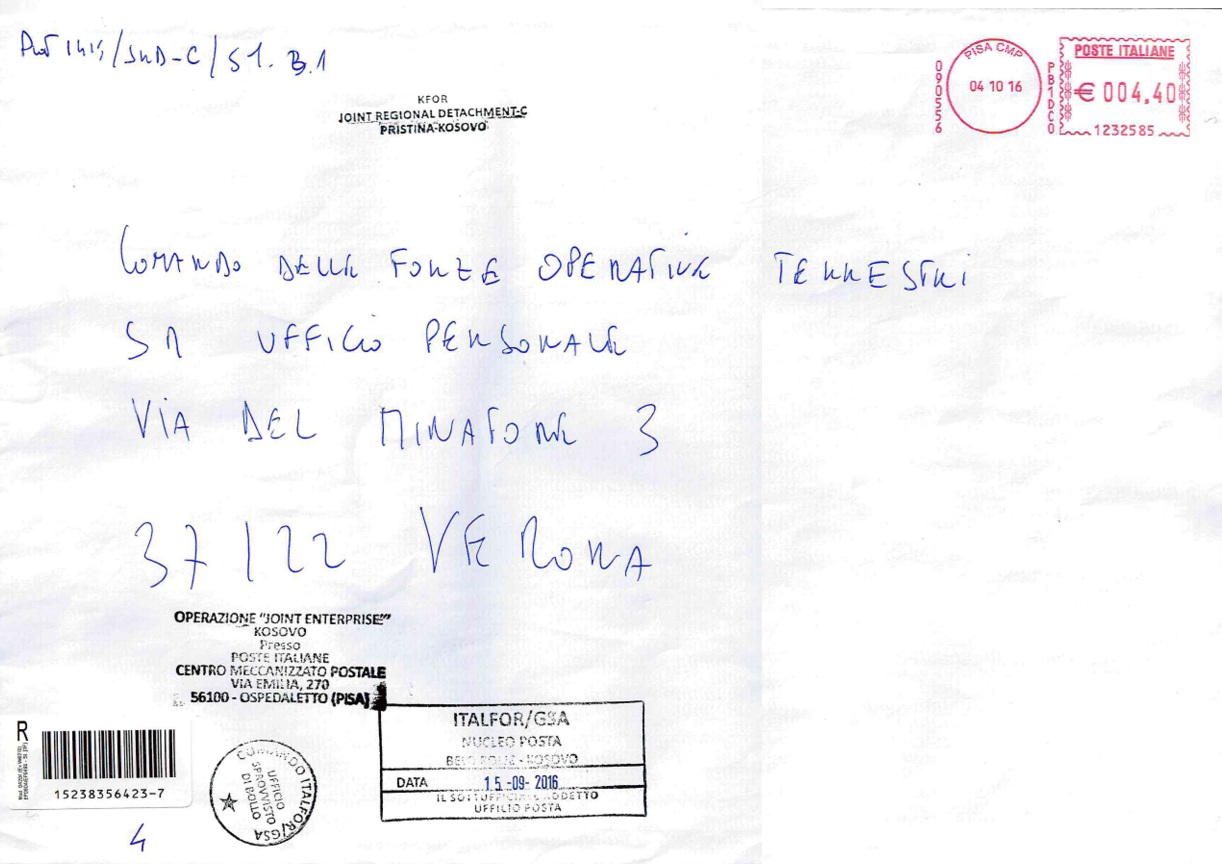 Prot 1415/JRD-C/S1.B.1
KFOR
JOINT REGIONAL DETACHMENT-C
PRISTINA-KOSOVO
PISA CMP
04 10 16
090556
PB1DC0
POSTE ITALIANE
€ 004,40
1232585
COMANDO DELLE FORZE OPERATIVE TERRESTRI
SM UFFICIO PERSONALE
VIA DEL MINATORE 3
37122 VERONA
OPERAZIONE "JOINT ENTERPRISE"
KOSOVO
Presso
POSTE ITALIANE
CENTRO MECCANIZZATO POSTALE
VIA EMILIA, 270
56100 - OSPEDALETTO (PISA)
ITALFOR/GSA
NUCLEO POSTA
BELO POLJE - KOSOVO
DATA 15-09-2016
IL SOTTUFFICIALE ADDETTO
UFFICIO POSTA
R
15238356423-7
COMANDO ITALFOR/GSA
UFFICIO
SPROVVISTO
DI BOLLO
4